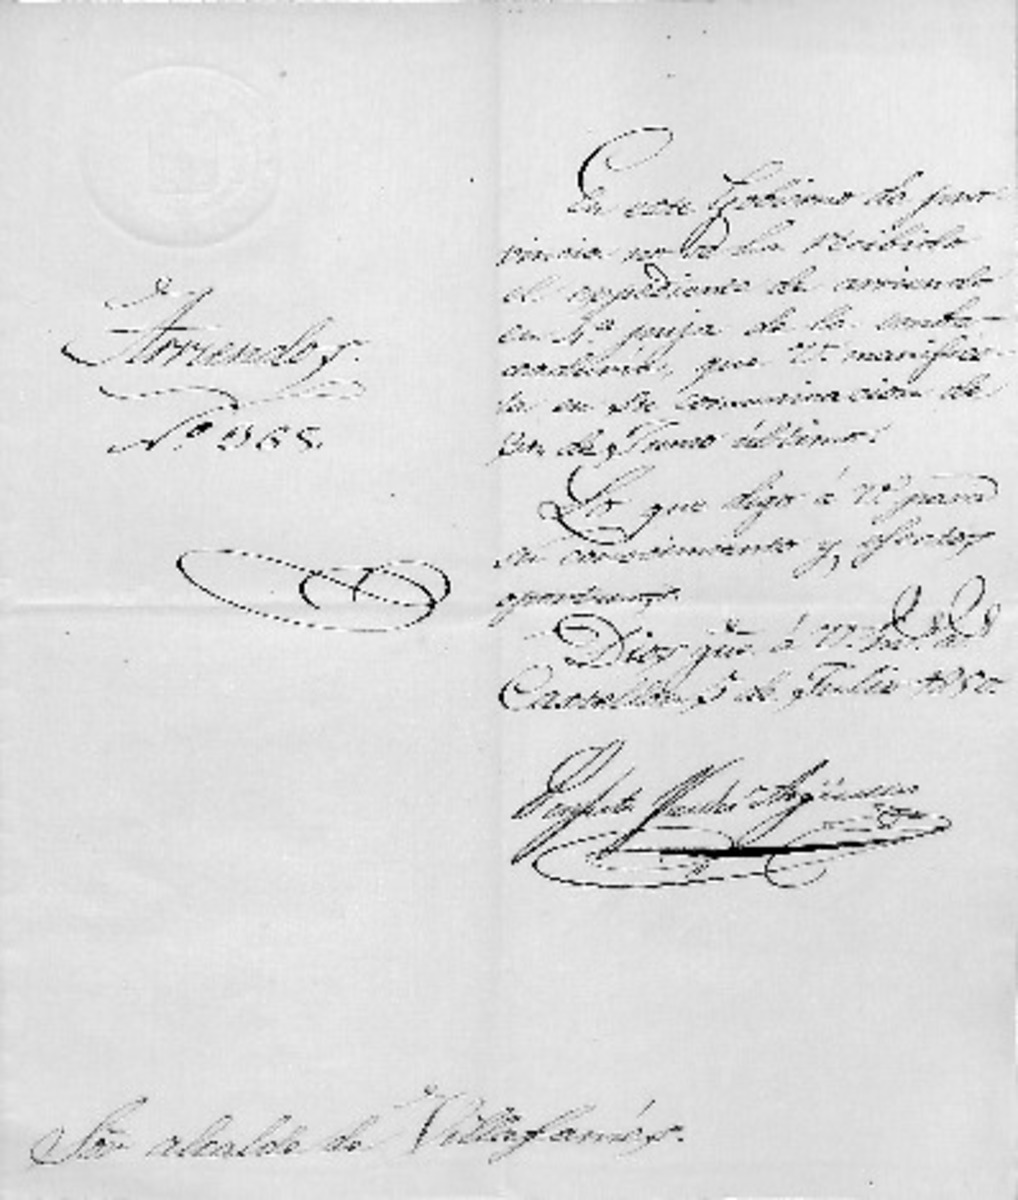 Arriendos.
Nº 1368.
En este Gobierno de pro-
vincia no se ha recibido
el expediente de arriendo
en 4ª puja de la
que V. manifies-
ta en su comunicacion de
de Junio último.
Lo que digo á V. para
su conocimiento y efectos
oportunos.
Dios gũe á V. m.s a.s
Castellon 5 de Julio 1850.
Señor alcalde de Villafamés.